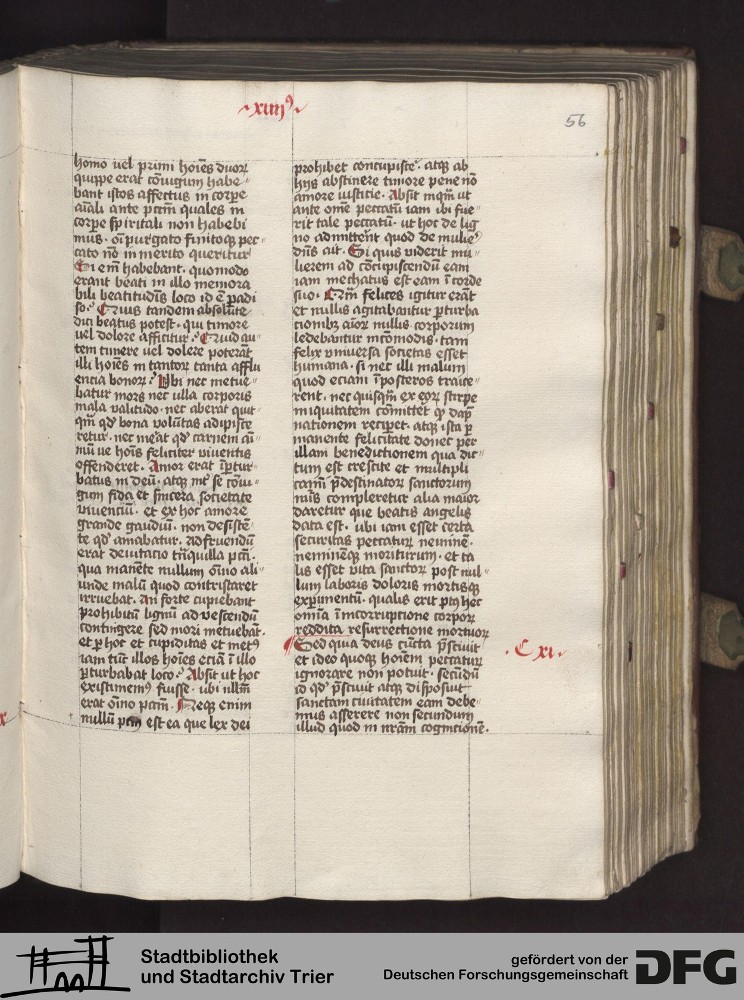 xiiii⁹
56
homo uel primi hoīes duoꝝ
quippe erat cōiugium habe
bant istos affectus in corꝑe
aīali ante pctm quales in
corꝑe spiritali non habebi
mus · oī purgato finitoqꝫ pec
cato nō in merito queritur
Si em̄ habebant · quomodo
erant beati in illo memora
bili beatitudīs loco id ē ꝑadi
so · Cuius tandem absolute
dici beatus potest · qui timore
uel dolore afficitur · Cuid au
tem timere uel dolere poterāt
illi hoīes in tantoꝝ tanta afflu
encia bonoꝝ · Ubi nec metue
batur mors nec ulla corporis
mala ualitudo · nec aberat quit
qm̄ qd' bona uolūtas adipisce
retur · nec īneāt qd' carnem aī
mū ue hoīs feliciter uiuentis
offenderet · Amor erat īꝑtur
batus in deū · atqꝫ int' se cōiu
gum fida et sincera societate
uiuenciū · et ex hoc amore
grande gaudiū · non desistē
te qd' amabatur · ad fruendū
erat deuitatio tn̄quilla pcti ·
qua manēte nullum oīno ali
unde malū quod contristaret
irruebat · An forte cupiebant
prohibitū lignū ad uescendū
contingere sed mori metuebāt ·
et ꝑ hoc et cupiditas et met⁹
iam tūc illos hoīes eciā ī illo
ꝑturbabat loco · Absit ut hoc
existimem⁹ fuisse · ubi nllm̄
erat oīno pctm̄ · Neqꝫ enim
nullū pctm̄ est ea que lex dei
prohibet concupiscē · atqꝫ ab
hijs abstinere timore pene nō
amore iusticie · Absit inqm̄ ut
ante ome peccatū iam ibi fue
rit tale peccatū · ut hoc de lig
no admitterēt quod de mulieꝰ
dn̄s ait · Si quis uiderit mu
lierem ad cōcupiscendū eam
iam mechatus est eam ī corde
suo · Cm̄ felices igitur erāt
et nullis agitabantur ꝑturba
cionibꝫ aīoꝝ nullis corporum
ledebantur incōmodis · tam
felix uniuersa societas esset
humana · si nec illi malum
quod eciam ī posteros traice
rent · nec quisqm̄ ex eoꝝ stirpe
iniquitatem cōmittet q̄ dāp
nationem reciꝑet · atqꝫ ista ꝑ
manente felicitate donec per
illam benedictionem qua dic
tum est crescite et multipli
camī p̄destinatoꝝ sanctorum
nūs compleretur alia maior
daretur que beatis angelis
data est · ubi iam esset certa
securitas peccatuꝝ neminē ·
neminēqꝫ moriturum · et ta
lis esset uita sanctoꝝ post nul
lum laboris doloris mortisqꝫ
exꝑimentū · qualis erit pꝰ hec
omīa ī incorruptione corporꝝ
reddita resurrectione mortuoꝝ
Sed quia deus cūcta p̄sciuit
C xi
et ideo quoqꝫ hoīem peccatuꝝ
ignorare non potuit · secūdū
id qd' p̄sciuit atqꝫ disposuit
sanctam ciuitatem eam debe
mus asserere non secundum
illud quod in nr̄am cognicionē ·
Stadtbibliothek
und Stadtarchiv Trier
gefördert von der
Deutschen Forschungsgemeinschaft
DFG